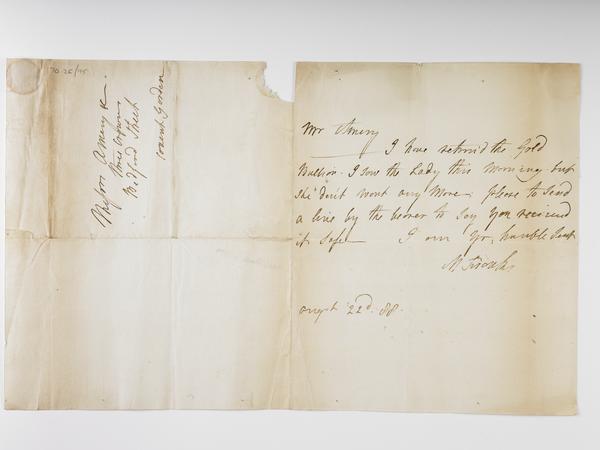 70.26/95
Messrs Amery &
Three Crowns
Bedford Street
Covent Garden
Mr Amery
I have returnd the Gold
Bullion. I saw the Lady this Morning but
She don't want any More. please to Send
a line by the bearer to Say you received
it Safe I am Yr. humble Servt
M
augst 22d. 88.